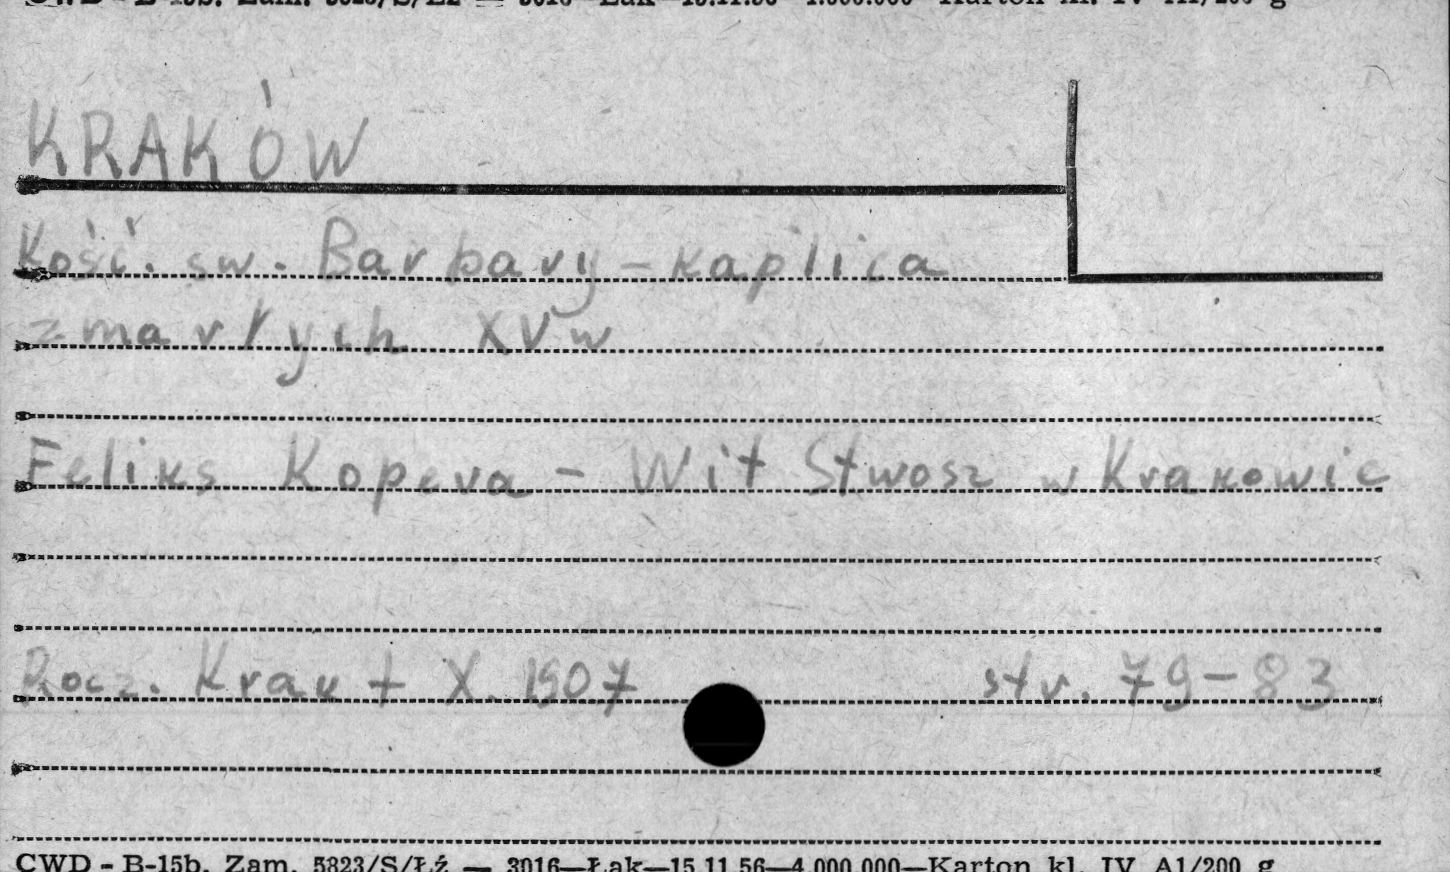 KRAKÓW
Kość. św. Barbary - kaplica
zmarłych XV w
Feliks Kopera - Wit Stwosz w Krakowie
Rocz. Krak t X. 1907 str. 79-83
CWD - B-15b. Zam. 5823/S/Łź — 3016—Łak—15.11.56—4.000.000—Karton kl. IV A1/200 g